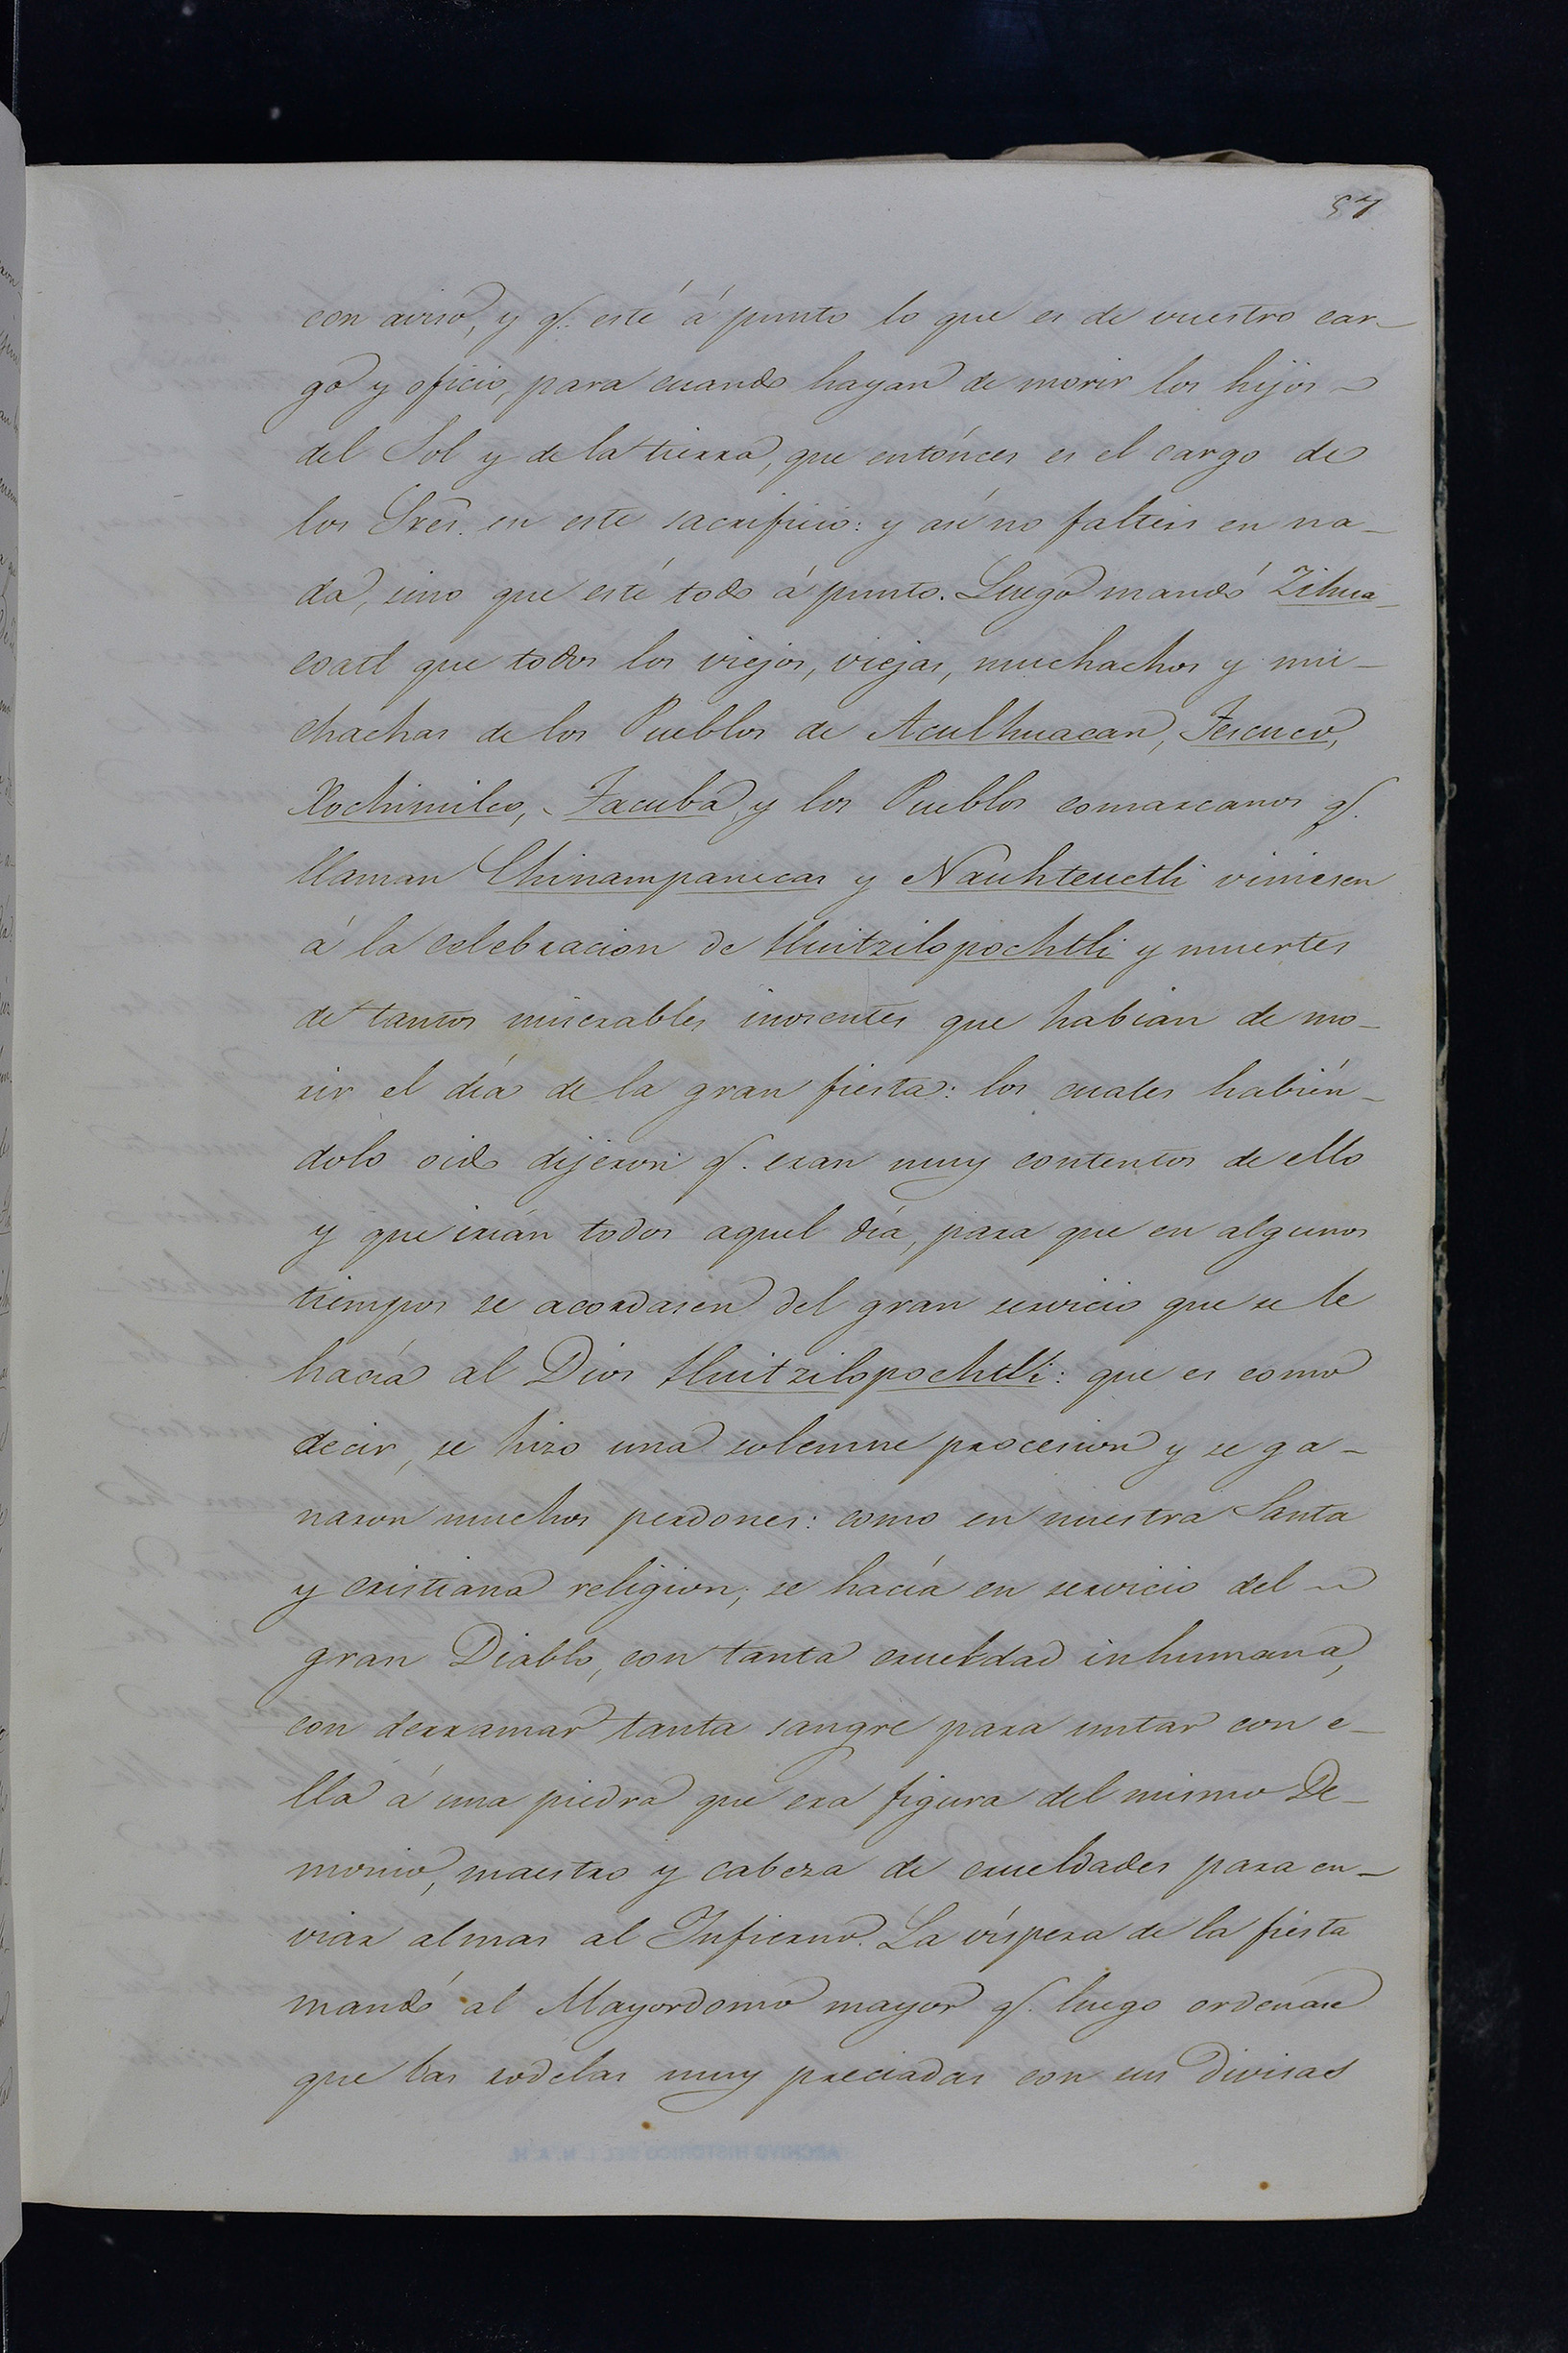 57
con aviso, y q.e esté á punto lo que es de vuestro car-
go y oficio, para cuando hayan de morir los hijos
del Sol y de la tierra, que entónces es el cargo de
los Sres. en este sacrificio: y así no falteis en na-
da, sino que esté todo á punto. Luego mandó Zihua-
coatl que todos los viejos, viejas, muchachos y mu-
chachas de los Pueblos de Aculhuacan, Tescuco,
Xochimilco, Tacuba y los Pueblos comarcanos q.e
llaman Chinampanecas y Nauhteuctli viniesen
á la celebracion de Huitzilopochtli y muertes
de tantos miserables inosentes que habian de mo-
rir el día de la gran fiesta: los cuales habién-
dolo oido dijeron q.e eran muy contentos de ello
y que irían todos aquel día, para que en algunos
tiempos se acordasen del gran servicio que se le
hacía al Dios Huitzilopochtli: que es como
decir, se hizo una solemne procesion y se ga-
naron muchos perdones: como en nuestra Santa
y cristiana religion, se hacía en servicio del
gran Diablo, con tanta crueldad inhumana,
con derramar tanta sangre para untar con e-
lla á una piedra que era figura del mismo De-
monio, maestro y cabeza de crueldades para en-
viar almas al Infierno. La víspera de la fiesta
mandó al Mayordomo mayor q.e luego ordenase
que las rodelas muy preciadas con sus Divisas
ARCHIVO HISTORICO DEL I. N. A. H.